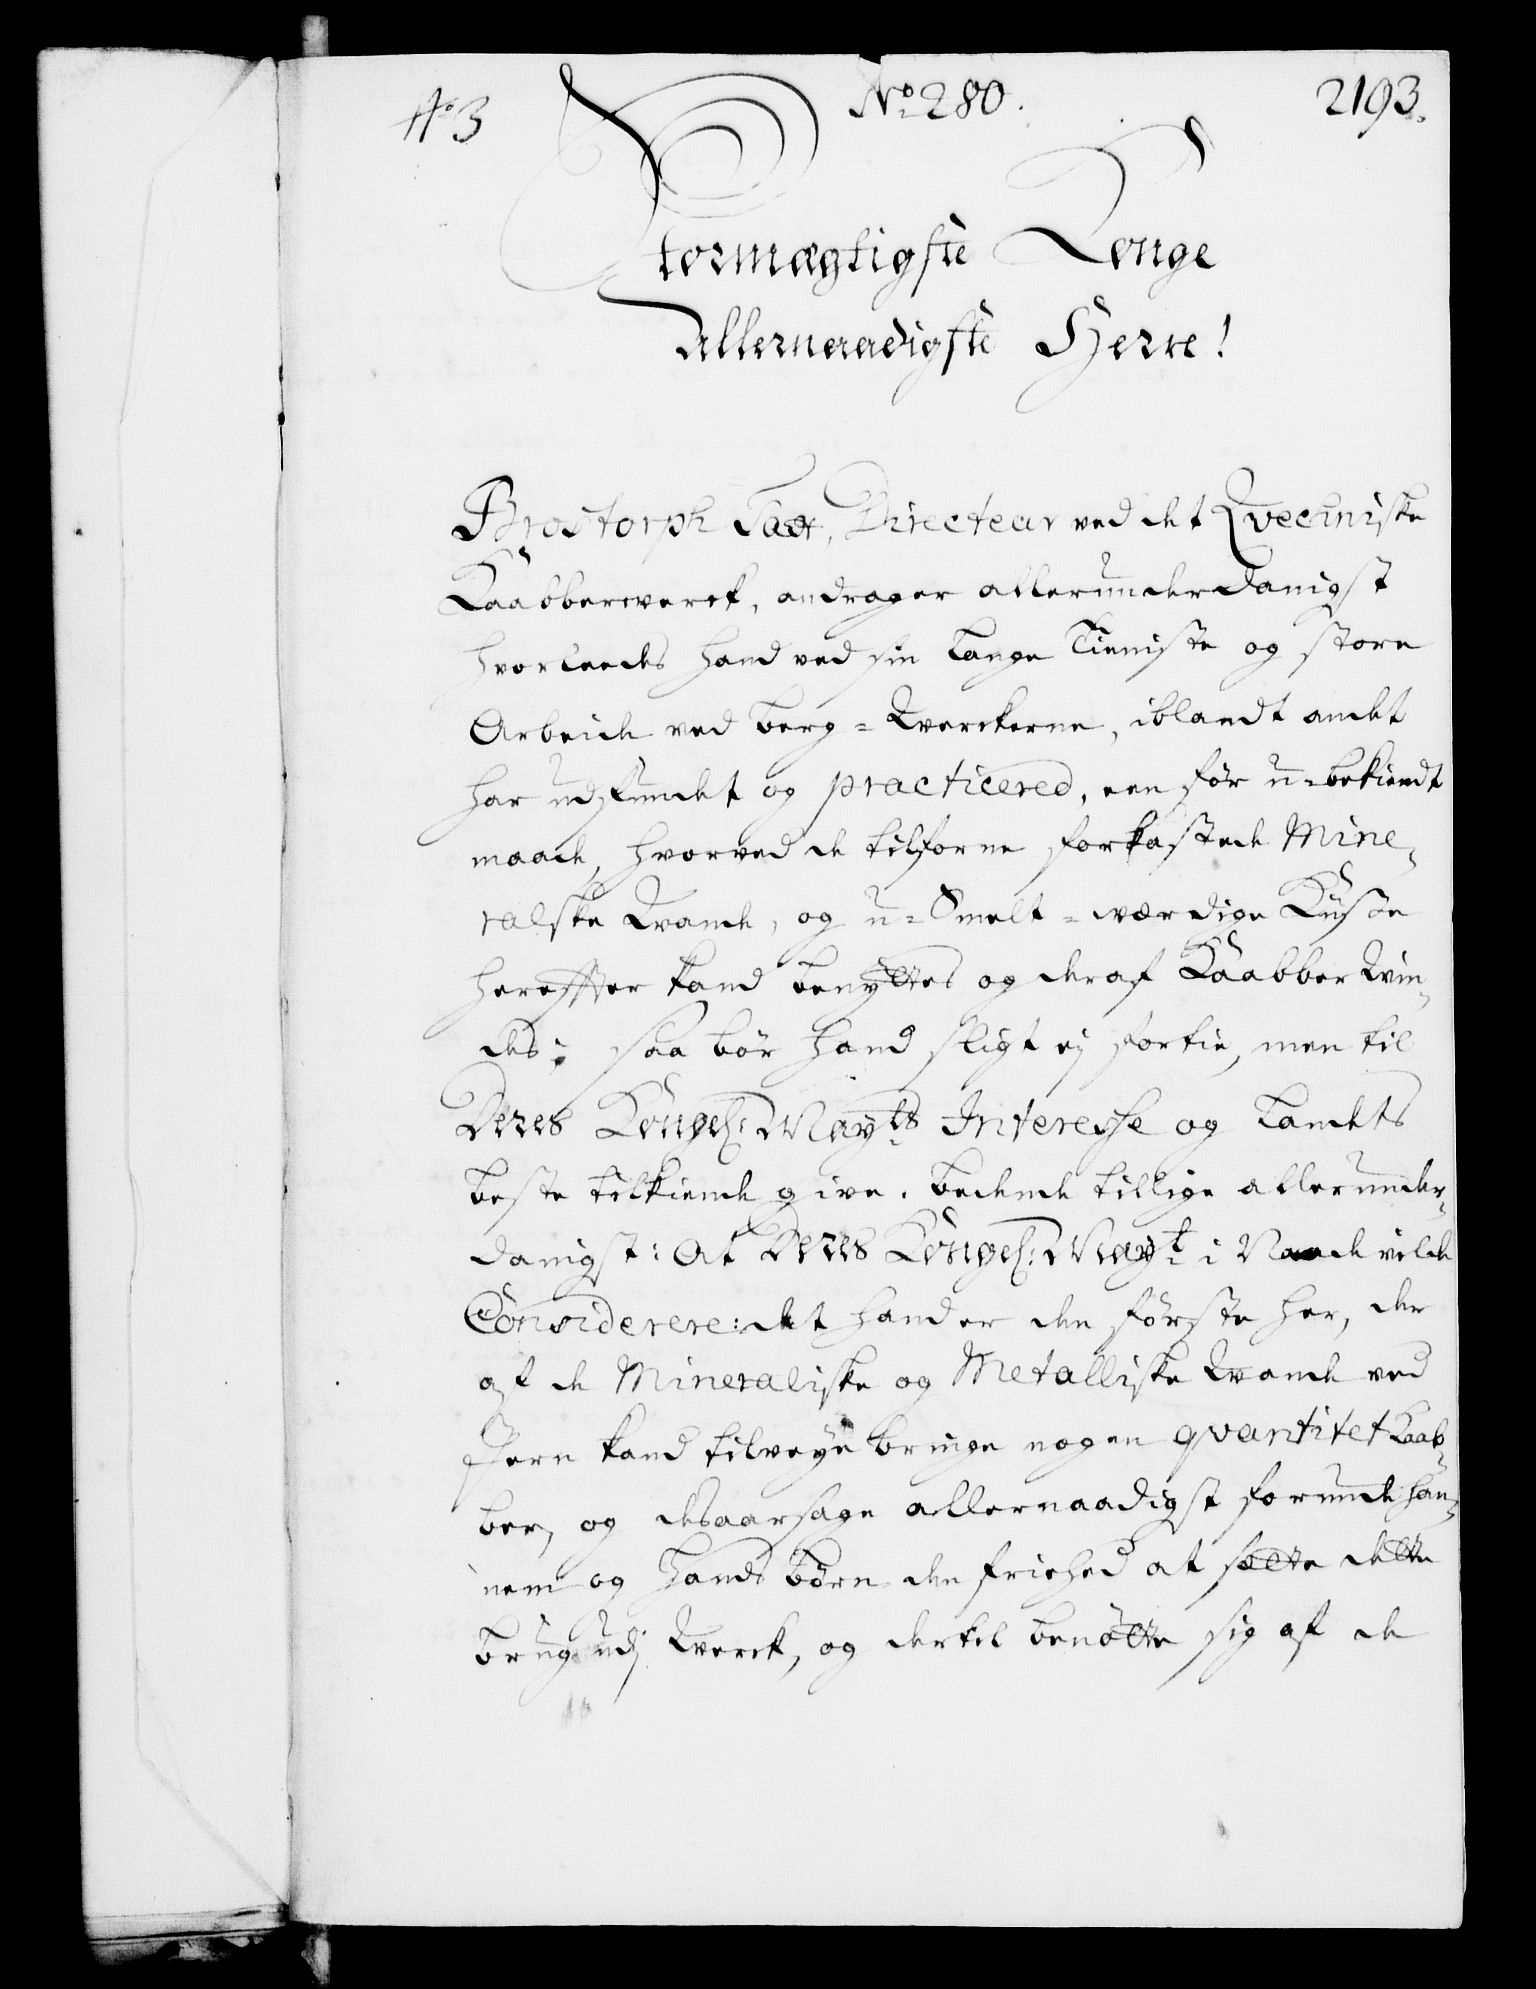 No 3
No 280.
2193.
Stormægtigste Konge
Allernaadigste Herre!
Brostorph Directeur ved det Qvechniske
Kaabberwerck, andrager allerunderdanigst
hvorleedes hand ved sin lange Tieniste og store
Arbeide ved berg=Werckerne, iblandt andet
har udfundet og practicered, een før u=bekiendt
maade, hvorved de tilforne forkastede Mine¬
ralske Vande, og u=Smelt=værdige Kiisse
herefter kand benyttes og deraf Kaabber vin¬
des; saa bør hand sligt ej fortie, men til
Deres Kongel: May:ts Interesse og Landets
beste tilkiende give. bedende tillige allerunder¬
danigst: At Deres Kongel: May:t i Naade vilde
Considerere: det hand er den første her, der
af de Mineraliske og Metalliske Vande ved
Jern kand tilveye bringe nogen qvantitet Kaab¬
ber, og desaarsage allernaadigst forunde han¬
nem og hands børn den friehed at sætte dette
brug udj Werck, og dertil benøtte sig af de